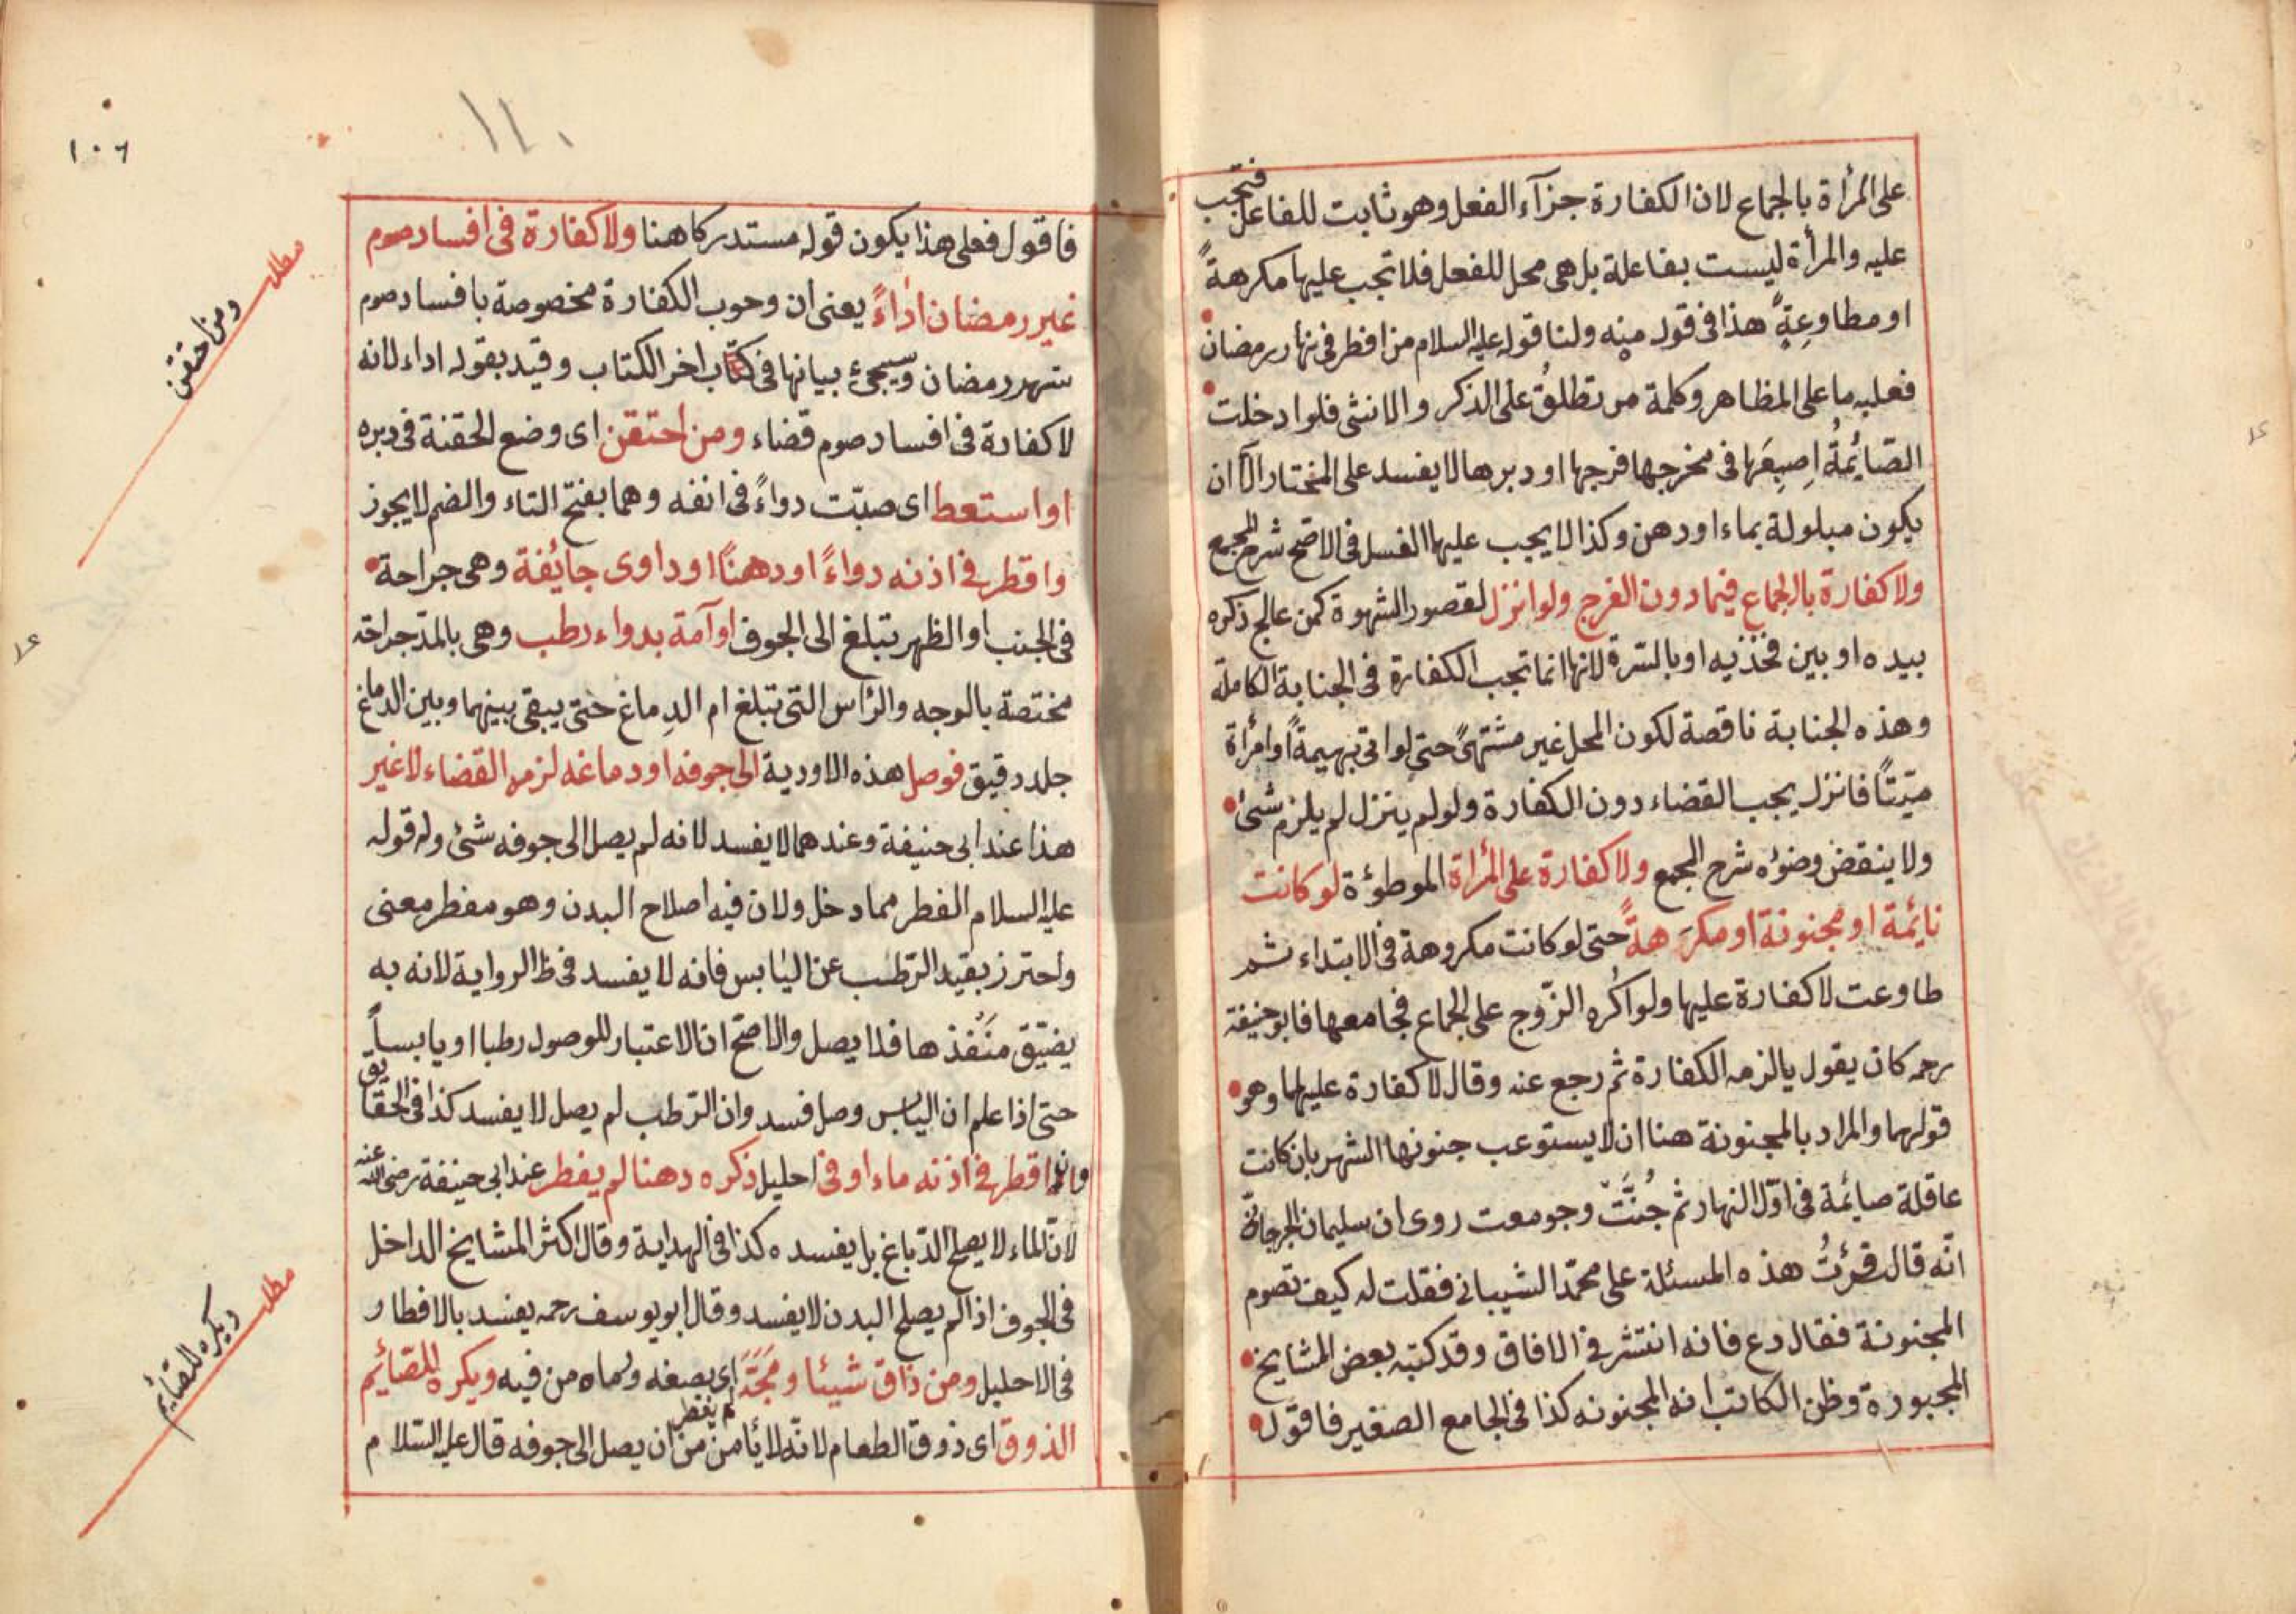 على المرأة بالجماع لان الكفارة جزآء الفعل وهو ثابت للفاعل فتجب
عليه والمرأة ليست بفاعلة بل هى محل للفعل فلا تجب عليها مكرهةً
او مطاوعةً هذا فى قول منه ولنا قوله عليه السلام من افطر فى نهار رمضان
فعليه ما على المظاهر وكلمة من تطلق على الذكر والانثى فلو ادخلت
الصّايمةُ اصبعَها فى مخرجها فرجها او دبرها لا يفسد على المختار الّا ان
يكون مبلولة بماء او دهن وكذا لا يجب عليها الغسل فى الاصح شرح المجمع
ولا كفارة بالجماع فيما دون الفرج ولو انزل لقصور الشهوة كمن عالج ذكره
بيده او بين فخذيه او بالسّرة لانها انما تجب الكفارة فى الجنابة الكاملة
وهذه الجنابة ناقصة لكون المحل غير مشتهىً حتى لو اتى بهيمةً او امرأة
ميّتتًا فانزل يجب القضاء دون الكفارة ولو لم ينزل لم يلزم شئ
ولا ينقض وضوءه شرح المجمع ولا كفارة على المرأة الموطوءة لو كانت
نايمة او مجنونة او مكرَهةً حتى لو كانت مكروهة فى الابتداء ثم
طاوعت لا كفارة عليها ولو اكره الزّوج على الجماع فجامعها فابو حنيفة
رحمه كان يقول يالزمه الكفارة ثم رجع عنه وقال لا كفارة عليهما وهو
قولهما والمراد بالمجنونة هنا ان لا يستوعب جنونها الشهر بان كانت
عاقلة صايمة فى اوّل النهار ثم جُنَّتْ وجومعت روى ان سليمان الجرجانى
انّه قال قرئتُ هذه المسئلة على محمّد الشيبانى فقلت له كيف تصوم
المجنونة فقال دع فانه انتشر فى الافاق وقد كتبه بعض المشايخ
المجبورة وظن الكاتب انه المجنونه كذا فى الجامع الصغير فاقول
١٠٦
١١٠
فاقول فعلى هذا يكون قوله مستدركا هنا ولا كفارة فى افساد صوم
غير رمضان اداءً يعنى ان وجوب الكفارة مخصوصة بافساد صوم
شهر رمضان وسيجئ بيانها فى كتاب اخر الكتاب وقيد بقوله اداء لانه
لا كفارة فى افساد صوم قضاء ومن احتقن اى وضع الحقنة فى دبره
او استعط اى صبّت دواءً فى انفه وهما بفتح التاء والضم لا يجوز
واقطر فى اذنه دواءً او دهنًا او داوى جائفة وهى جراحة
فى الجنب او الظهر تبلغ الى الجوف او آمة بدواء رطب وهى بالمد جراحة
مختصة بالوجه والرّاس التى تبلغ ام الدِماغ حتى يبقى بينهما وبين الدماغ
جلد رقيق فوصل هذه الاودية الى جوفه او دماغه لزمه القضاء لا غير
هذا عند ابى حنيفة وعندهما لا يفسد لانه لم يصل الى جوفه شئ وله قوله
عليه السلام الفطر مما دخل ولان فيه اصلاح البدن وهو مفطر معنى
واحترز بقيد الرّطب عن اليابس فانه لا يفسد فى ظ الرواية لانه به
يضيّق منَفذها فلا يصل والاصحّ ان الاعتبار للوصول رطبا او يابساً
حتى اذا علم ان اليابس وصل فسد وان الرّطب لم يصل لا يفسد كذا فى الحقايق
وان اقطر فى اذنه ماء او فى احليل ذكره دهنا لم يفطر عند ابى حنيفة رضى الله عنه
لانّ الماء لا يصلح الدباغ بل يفسده كذا فى الهداية وقال اكثر المشايخ الداخل
فى الجوف اذا لم يصلح البدن لا يفسد وقال ابو يوسف رحمه يفسد بالافطار
فى الاحليل ومن ذاق شيئا ومَجَّهَ اى بصفه ورماه من فيه لم يفطر ويكره للصّائم
الذوق اى ذوق الطعام لانّه لا يأمن من ان يصل الى جوفه قال عليه السّلام
مطلب
ومن احتقن
مطلب
ويكره للصّايم